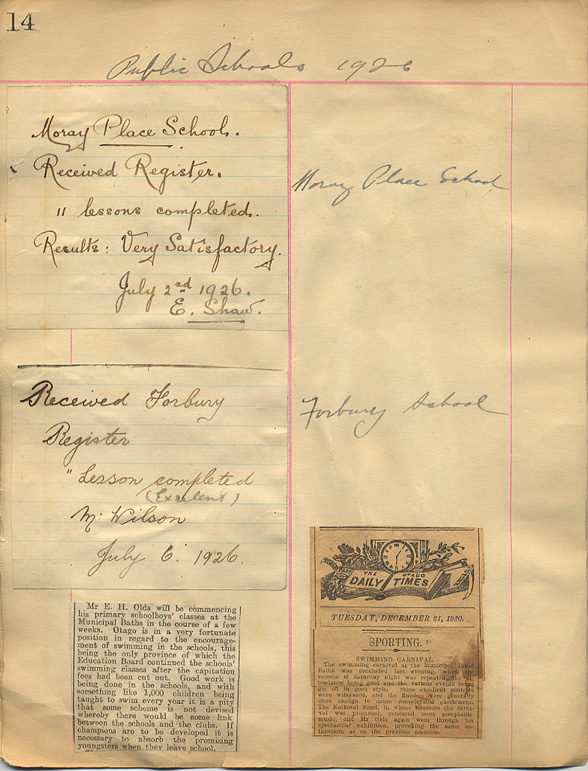 14
Public Schools 1926
Moray Place School.
Received Register.
11 lessons completed.
Results: Very Satisfactory.
July 2nd 1926.
E. Shaw.
Moray Place School
Received Forbury
Register
" Lesson completed
(Excelent)
M. Wilson
July 6. 1926.
Forbury School
Mr E. H. Olds will be commencing
his primary schoolboys' classes at the
Municipal Baths in the course of a few
weeks. Otago is in a very fortunate
position in regard to the encourage-
ment of swimming in the schools, this
being the only province of which the
Education Board continued the schools'
swimming classes after the capitation
fees had been cut out. Good work is
being done in the schools, and with
something like 1,000 children being
taught to swim every year it is a pity
that some scheme is not devised
whereby there would be some link
between the schools and the clubs. If
champions are to be developed it is
necessary to absorb the promising
youngsters when they leave school.
THE OTAGO
DAILY TIMES
TUESDAY, DECEMBER 21, 1920.
SPORTING.
SWIMMING CARNIVAL.
The swimming carnival at the Municipal Tepid
Baths was concluded last evening, when the
success of Saturday night was repeated, the
tendance being good and the various events
got off in good style. Some excellent contests
were witnessed and the finishes were
close enough to cause considerable excitement.
The Kaikorai Band, in whose interests the carni-
val was promoted, rendered most acceptable
music, and Mr Olds again went through his
spectacular exhibition, provoking the same en-
thusiasm as on the previous occasion.